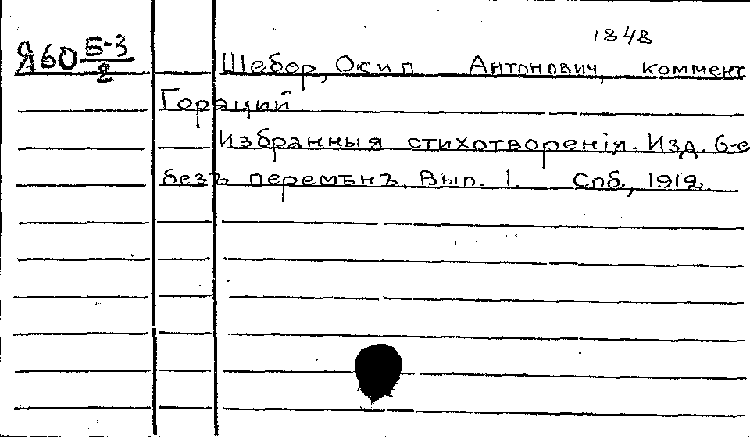 1848
Я60 Б-3/2 Шебор, Осип Антонович, коммент
Гораций
Избранныя стихотворенія. Изд. 6-е
безъ перемѣнъ. Вып. 1. Спб., 1912